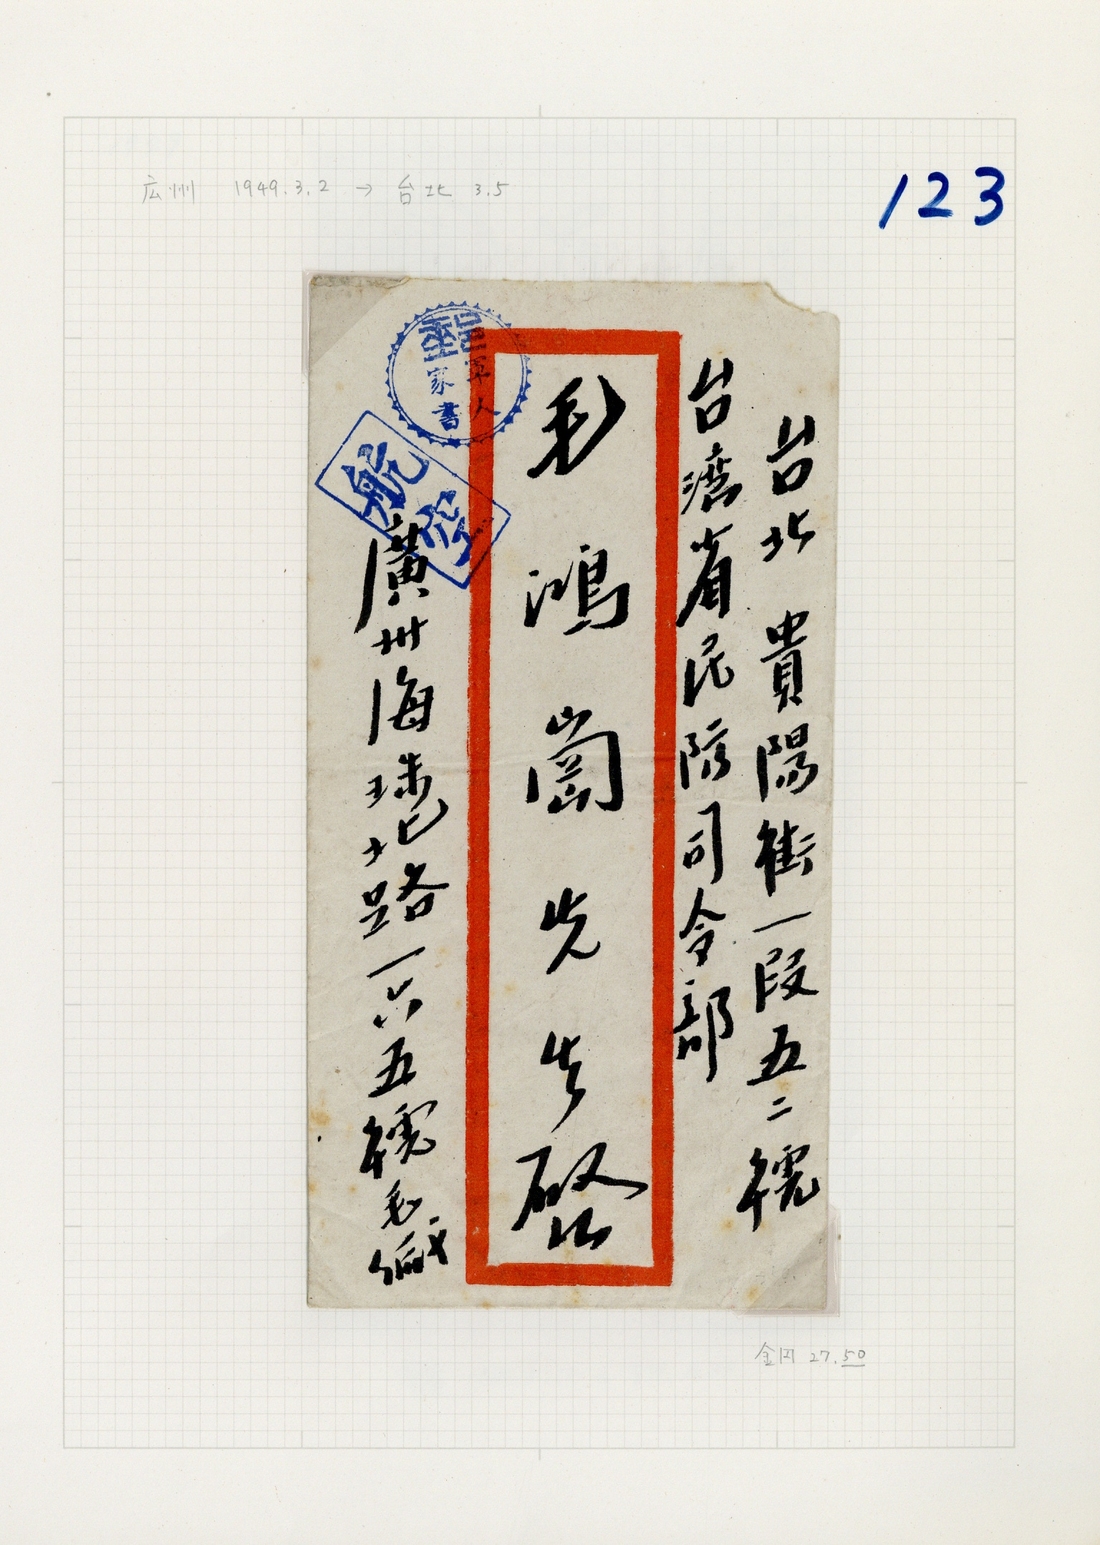 広州 1949.3.2 → 台北 3.5
123
台北 貴陽街一段五二號
台灣省民防司令部
毛鴻崗先生啓
軍人
家書
航空
廣州海珠北路一六五號毛緘
金円 27.50